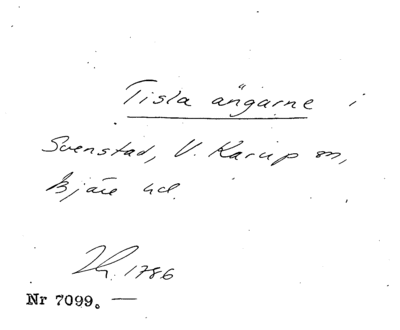 Tisla ängarne i
Svenstad, V. Karup sn,
Bjäre hd.
Lh. 1786
Nr 7099. —